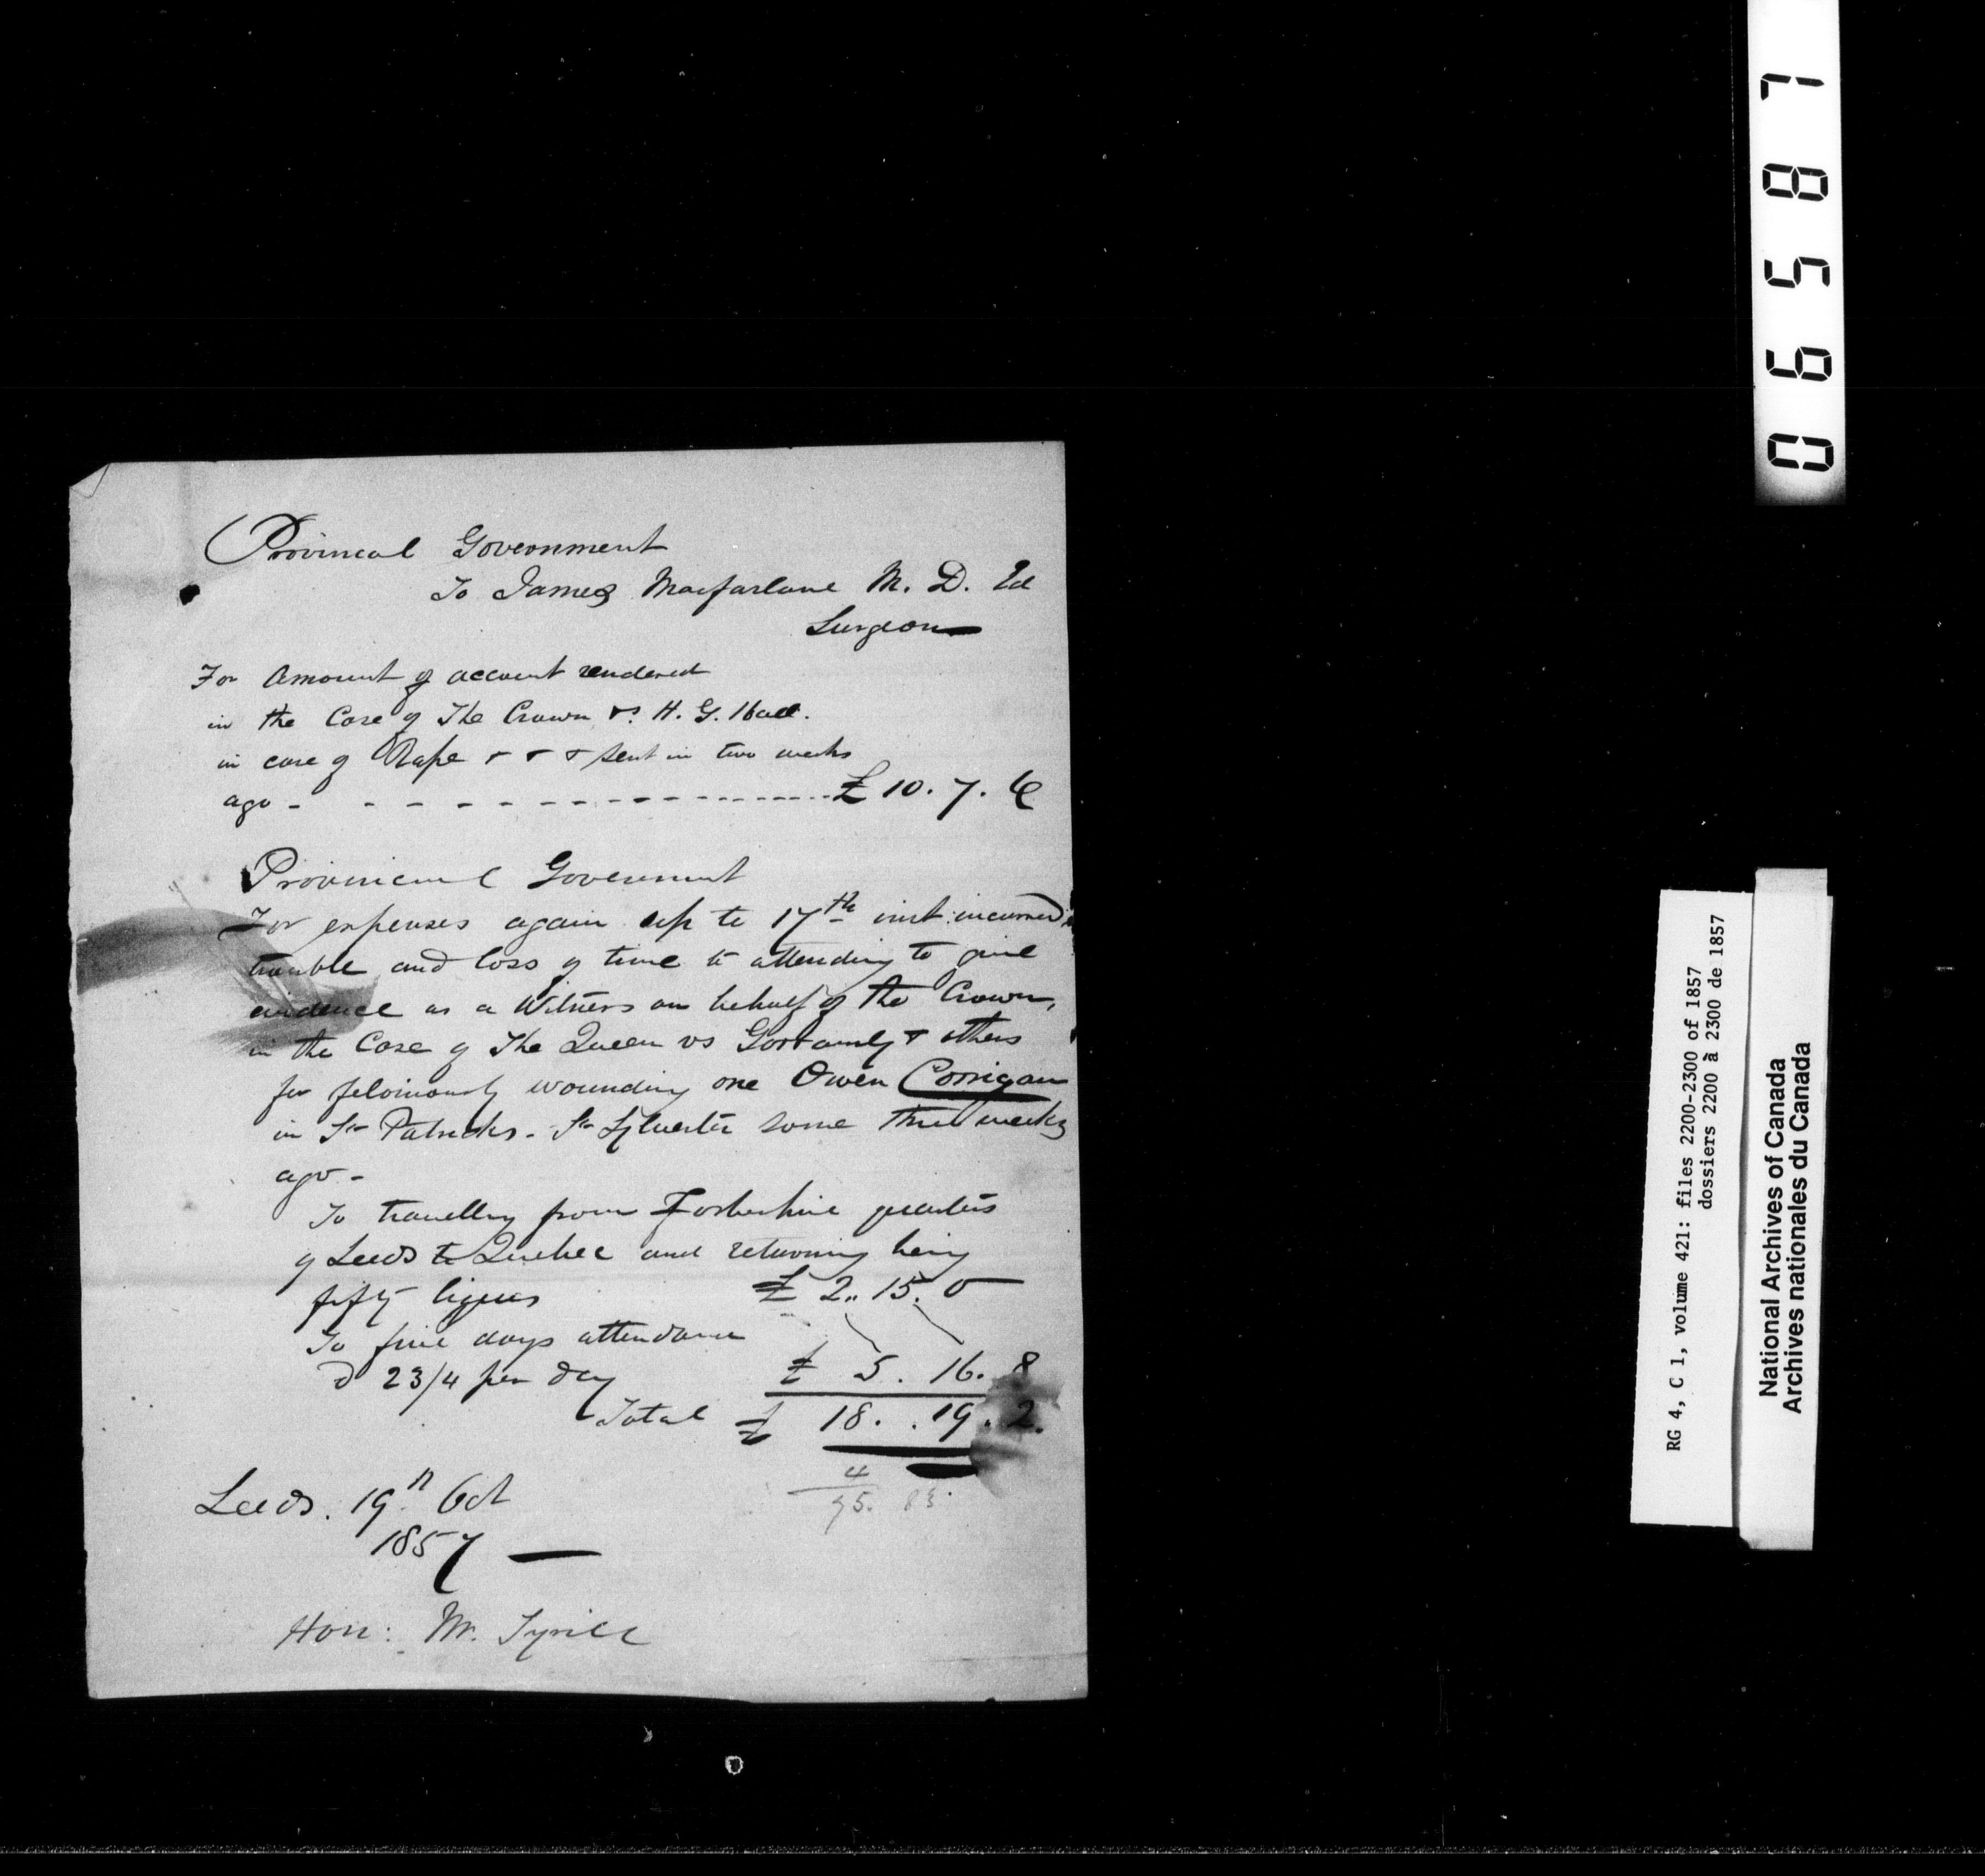 Provincial Government
To James Macfarlane M. D. Ed
Surgeon
For Amount of account rendered
in the Case of The Crown vs H. G. Hall.
in case of Rape & & & sent in two weeks
ago - - - - - - - - - - - - £ 10. 7. 6
Provincial Government
For expenses again up to 17th inst: incurred
trouble and loss of time in attending to give
evidence as a Witness on behalf of the Crown,
in the Case of The Queen vs & others
for feloniously wounding one Owen Corrigan
in St Patricks - St Sylvester some three weeks
ago -
To travelling from quarters
of Leeds to Quebec and returning being
fifty ligues £ 2.. 15. 0
To five days attendance
@ 23/4 per day £ 5. 16. 8
Total £ 18. . 19. 2.
4
75. 83.
Leeds. 19th Oct
1857 —
Hon: Mr.
06587
RG 4, C 1, volume 421: files 2200-2300 of 1857
dossiers 2200 à 2300 de 1857
National Archives of Canada
Archives nationales du Canada